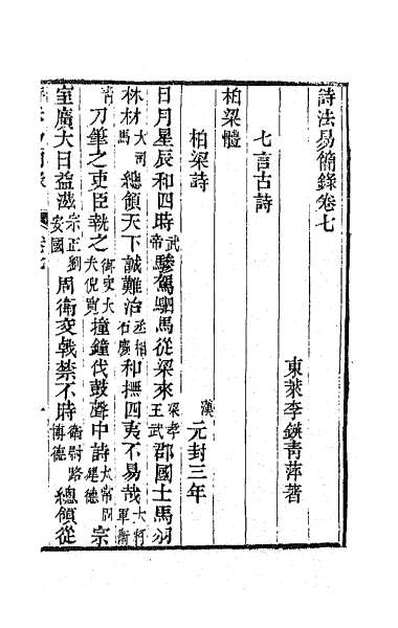 詩法易簡錄卷七
東萊李鍈青萍著
七言古詩
柏梁體
柏梁詩 漢元封三年
日月星辰和四時武帝驂駕駟馬從梁來梁孝王武郡國士馬羽
林材大司馬總領天下誠難治丞相石慶和撫四夷不易哉大將軍衛
青刀筆之吏臣執之御史大夫倪寬撞鐘伐鼓聲中詩太常周建德宗
室廣大日益滋宗正劉安國周衛交戟禁不時衛尉路博德總領從